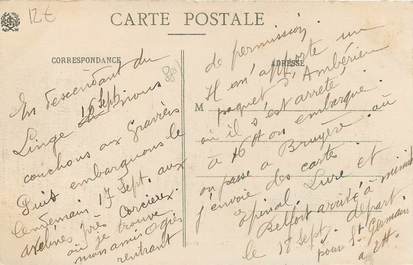 12€
CARTE POSTALE
CORRESPONDANCE
ADRESSE
M
En descendant du
Linge 16 Sept. nous
couchons aux Graviers
Puis embarquons le
lendemain 17 Sept. aux
près Corcieux.
où je trouve
mon ami
rentrant
de permission,
Il m'apporte un
paquet d'Ambérieu
où il s'est arrêté
à 16 H on embarque.
on passe à Bruyère où
j'envoie des cartes.
Epinal, Lure et
Belfort arrivé à minuit
le 18 Sept. départ
pour St Germain
à 2 H.